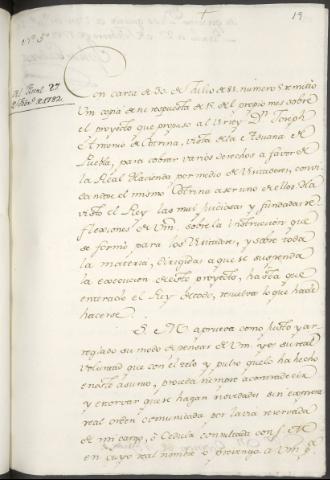 19.
N.º 5º
Con carta de 30. de Julio de 81. numero 8. remitió
Vm copia de su respuesta de 15. del propio mes sobre
el proyecto que propuso al Virrey Dn. Joseph
Antonio de Oterina, vista de la Aduana de
Puebla, para cobrar varios derechos a favor de
la Real Hacienda por medio de Visitadores,
el mismo Oterina a ser uno de ellos. Ha
visto el Rey las mas juiciosas y fundadas re-
flexiones de Vm. sobre la instruccion que
se formó para los Visitadores, y sobre toda
la materia, dirigidas a que se suspenda
la execucion de este proyecto, hasta que
enterado el Rey de todo, resuelva lo que haia de
hacerse.
S. M. aprueva como justo y ar-
reglado su modo de pensar de Vm. y es su real
voluntad que con el zelo y pulso que lo ha hecho
en este asunto, proceda siempre
y á estorvar que se hagan novedades sin expresa
real orden comunicada por la via reservada
de mi cargo, ó Cedula consultada con S. M.
en cuyo real nombre lo prevengo a Vm. pª.